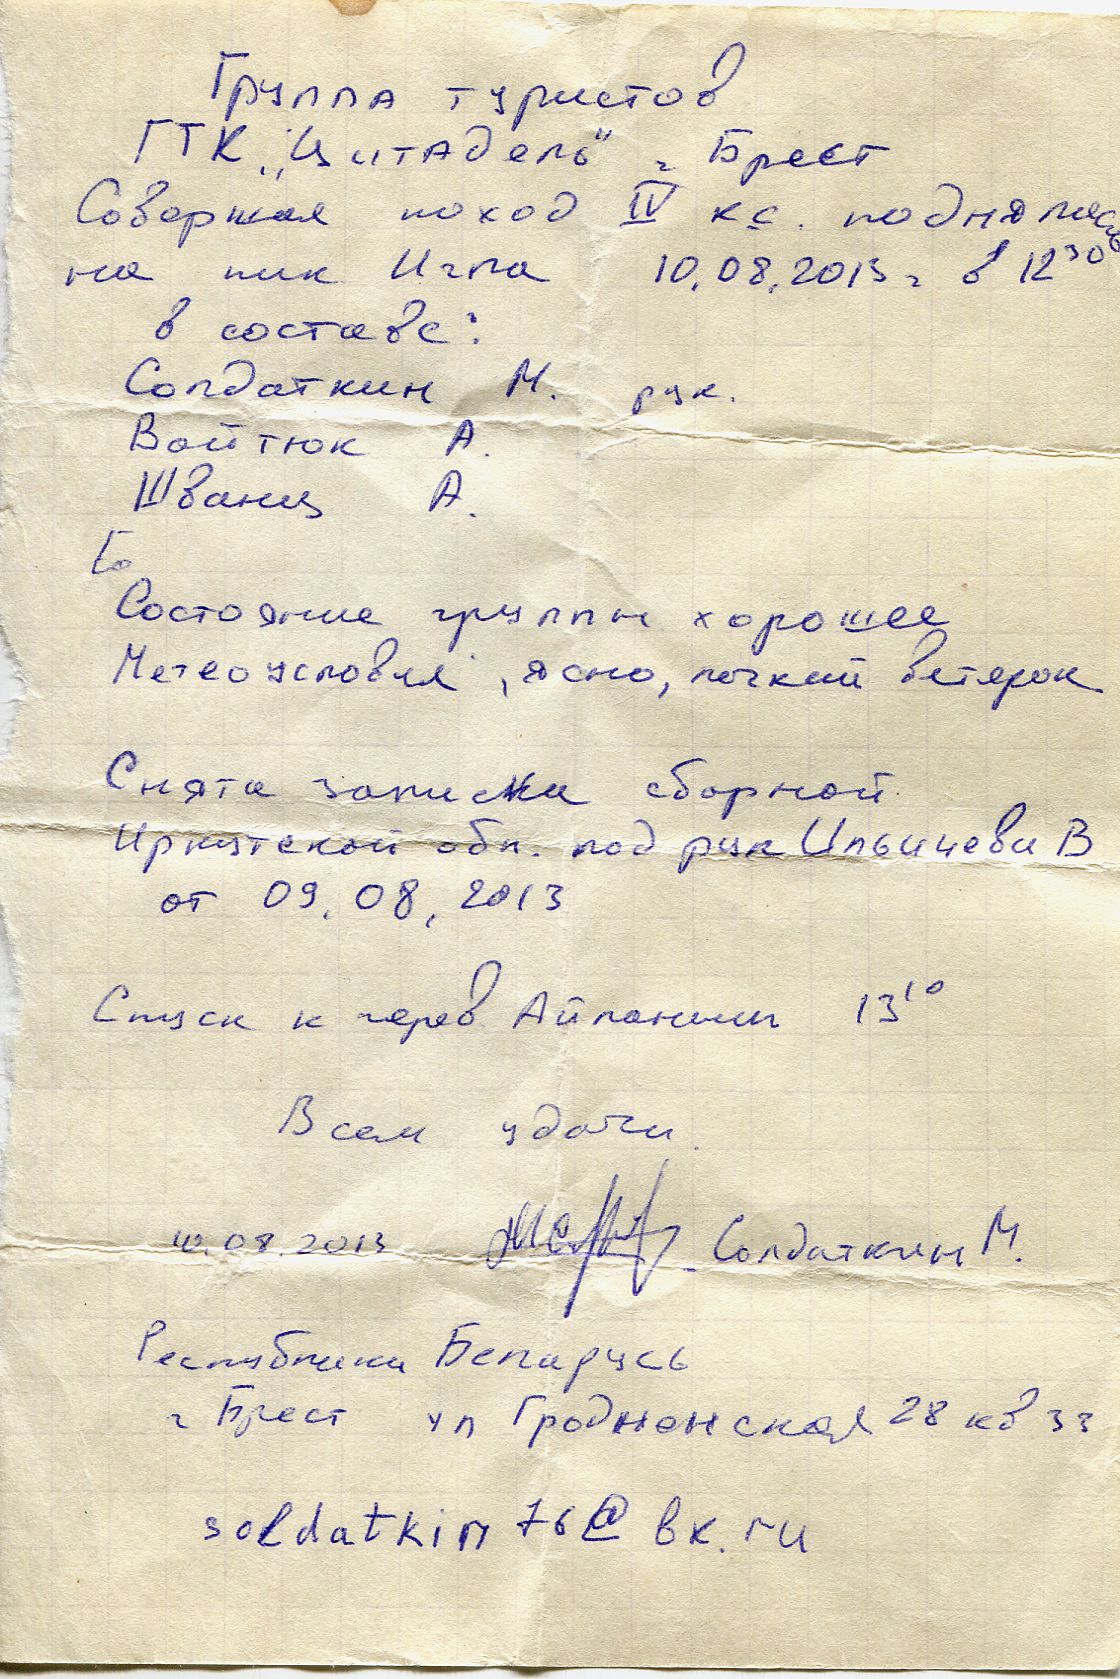 Группа туристов
ГТК „Цитадель" г Брест
Совершая поход IV кс. поднялись
на пик Игла 10.08.2013 г в 12³⁰
в составе:
Солдаткин М. рук.
Войтюк А.
Шванц А.
Состояние группы хорошее
Метеоусловия, ясно, легкий ветерок
Снята записка сборной
Иркутской обл. под рук Ильичева В
от 09.08.2013
Спуск к перев Айланыш 13¹⁰
Всем удачи.
10.08.2013 Солдаткин М.
Республика Беларусь
г Брест ул Гродненская 28 кв 33
soldatkin76@bk.ru